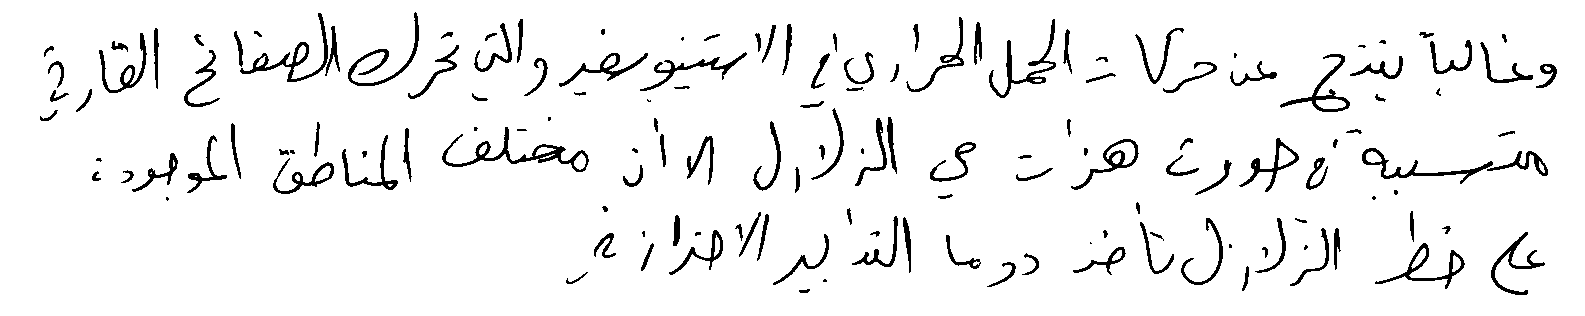 وغالباً ينتج عن حركات الحمل الحراري في الاستينوسفير والتي تحرك الصفائح القارية
متسببة في حدوث هزات هي الزلازل الا أن مختلف المناطق الموجودة
على خط الزلازل تأخذ دوما التدابير الاحترازية